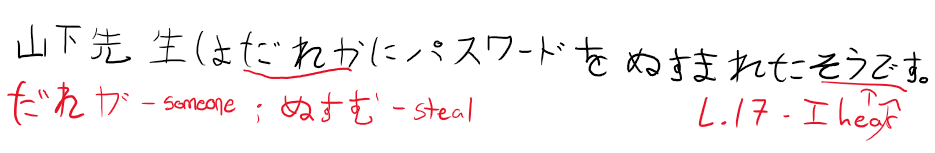 山下先生はだれかにパスワードをぬすまれたそうです。
だれが - someone ; ぬすむ - steal
L.17 - I hear